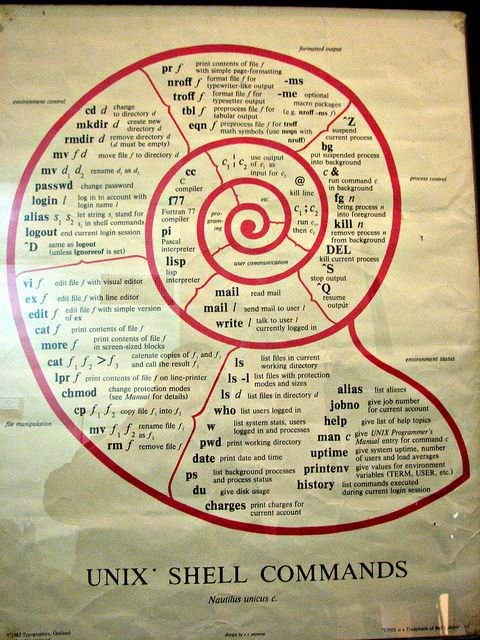 formatted output
pr f print contents of file f
with simple page-formatting
nroff f format file f for
typewriter-like output
-ms
troff f format file f for
typesetter output
-me optional
macro packages
(e.g. nroff -ms f)
tbl f preprocess file f for
tabular output
eqn f preprocess file f for troff
math symbols (use neqn with
nroff)
environment control
cd d change
to directory d
mkdir d create new
directory d
rmdir d remove directory d
(d must be empty)
mv f d move file f to directory d
mv d₁ d₂ rename d₁ as d₂
passwd change password
login l log in to account with
login name l
alias s₁ s₂ let string s₁ stand for
s₂ in shell commands
logout end current login session
^D same as logout
(unless ignoreeof is set)
process control
^Z
suspend
current process
bg
put suspended process
into background
c &
run command c
in background
fg n
bring process n
into foreground
kill n
remove process n
from background
DEL
kill current process
^S
stop output
^Q
resume
output
c₁ ¦ c₂ use output
of c₁ as
input for c₂
etc.
@
kill line
c₁ ; c₂
run c₁,
then c₂
programming
cc
C
compiler
f77
Fortran 77
compiler
pi
Pascal
interpreter
lisp
lisp
interpreter
user communication
mail read mail
mail l send mail to user l
write l talk to user l
currently logged in
vi f edit file f with visual editor
ex f edit file f with line editor
edit f edit file f with simple version
of ex
cat f print contents of file f
more f print contents of file f
in screen-sized blocks
cat f₁ f₂ > f₃ catenate copies of f₁ and f₂
and call the result f₃
lpr f print contents of file f on line-printer
chmod change protection modes
(see Manual for details)
cp f₁ f₂ copy file f₁ into f₂
mv f₁ f₂ rename file f₁
as f₂
rm f remove file f
file manipulation
environment status
ls list files in current
working directory
ls -l list files with protection
modes and sizes
ls d list files in directory d
who list users logged in
w list system stats, users
logged in and processes
pwd print working directory
date print date and time
ps list background processes
and process status
du give disk usage
charges print charges for
current account
alias list aliases
jobno give job number
for current account
help give list of help topics
man c give UNIX Programmer's
Manual entry for command c
uptime give system uptime, number
of users and load averages
printenv give values for environment
variables (TERM, USER, etc.)
history list commands executed
during current login session
UNIX* SHELL COMMANDS
Nautilus unicus c.
Typographics, Oakland
design by
*UNIX is a Trademark of Bell